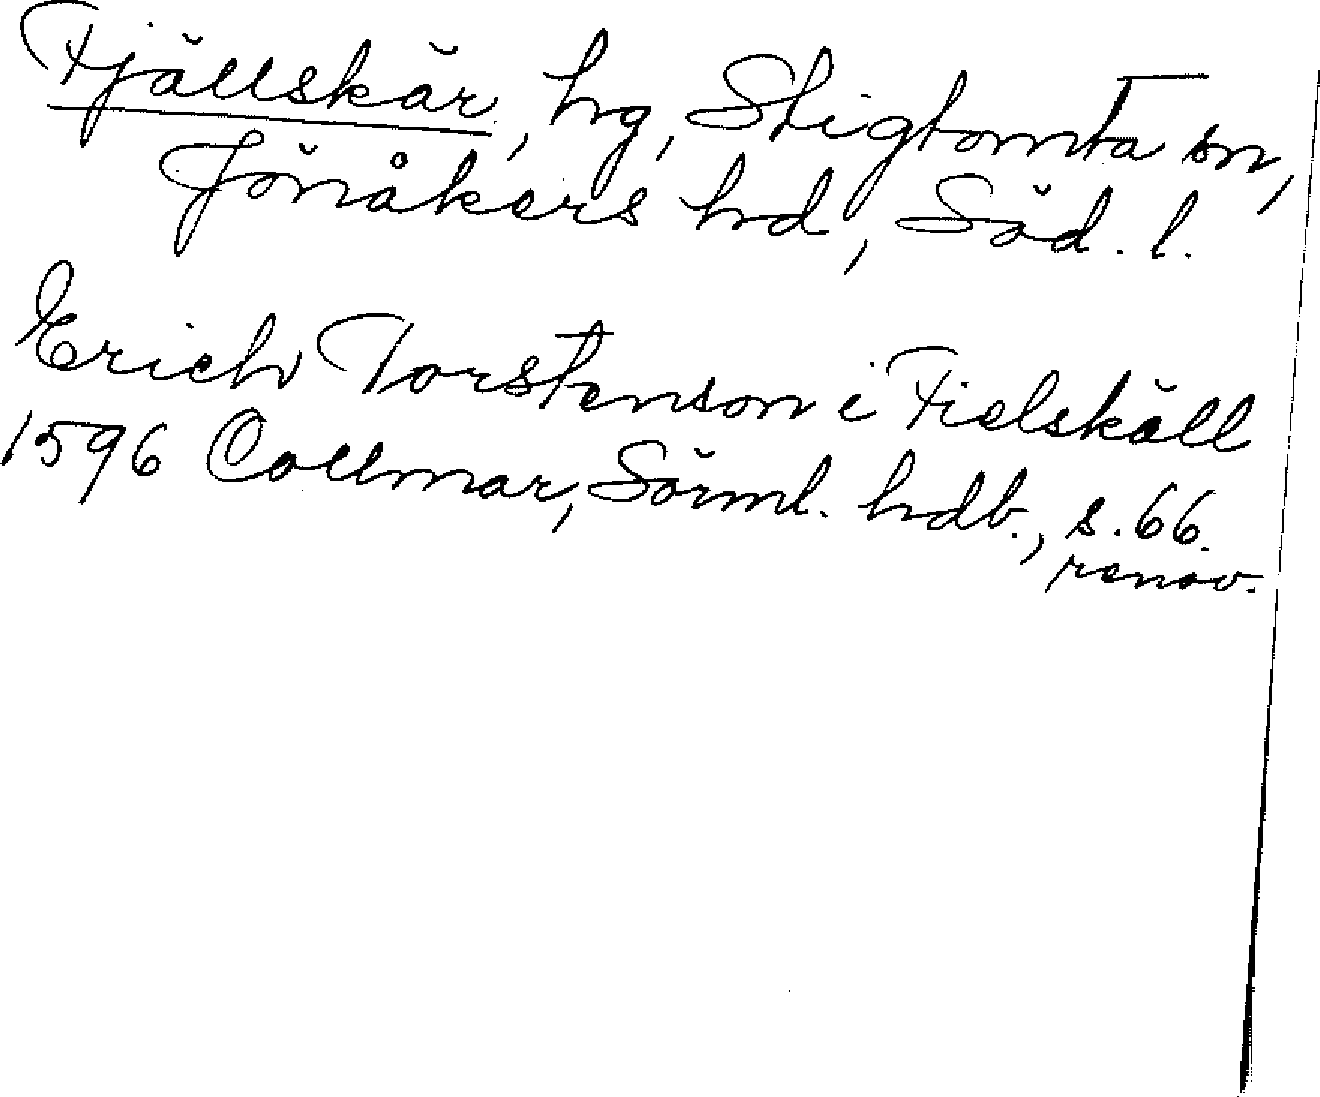 Fjällskär, hg, Stigtomta sn,
Jönåkers hd, Söd. l.
Erich Torstenson i Fielskäll
1596 Collmar, Sörml. hdb., s. 66.
renov.